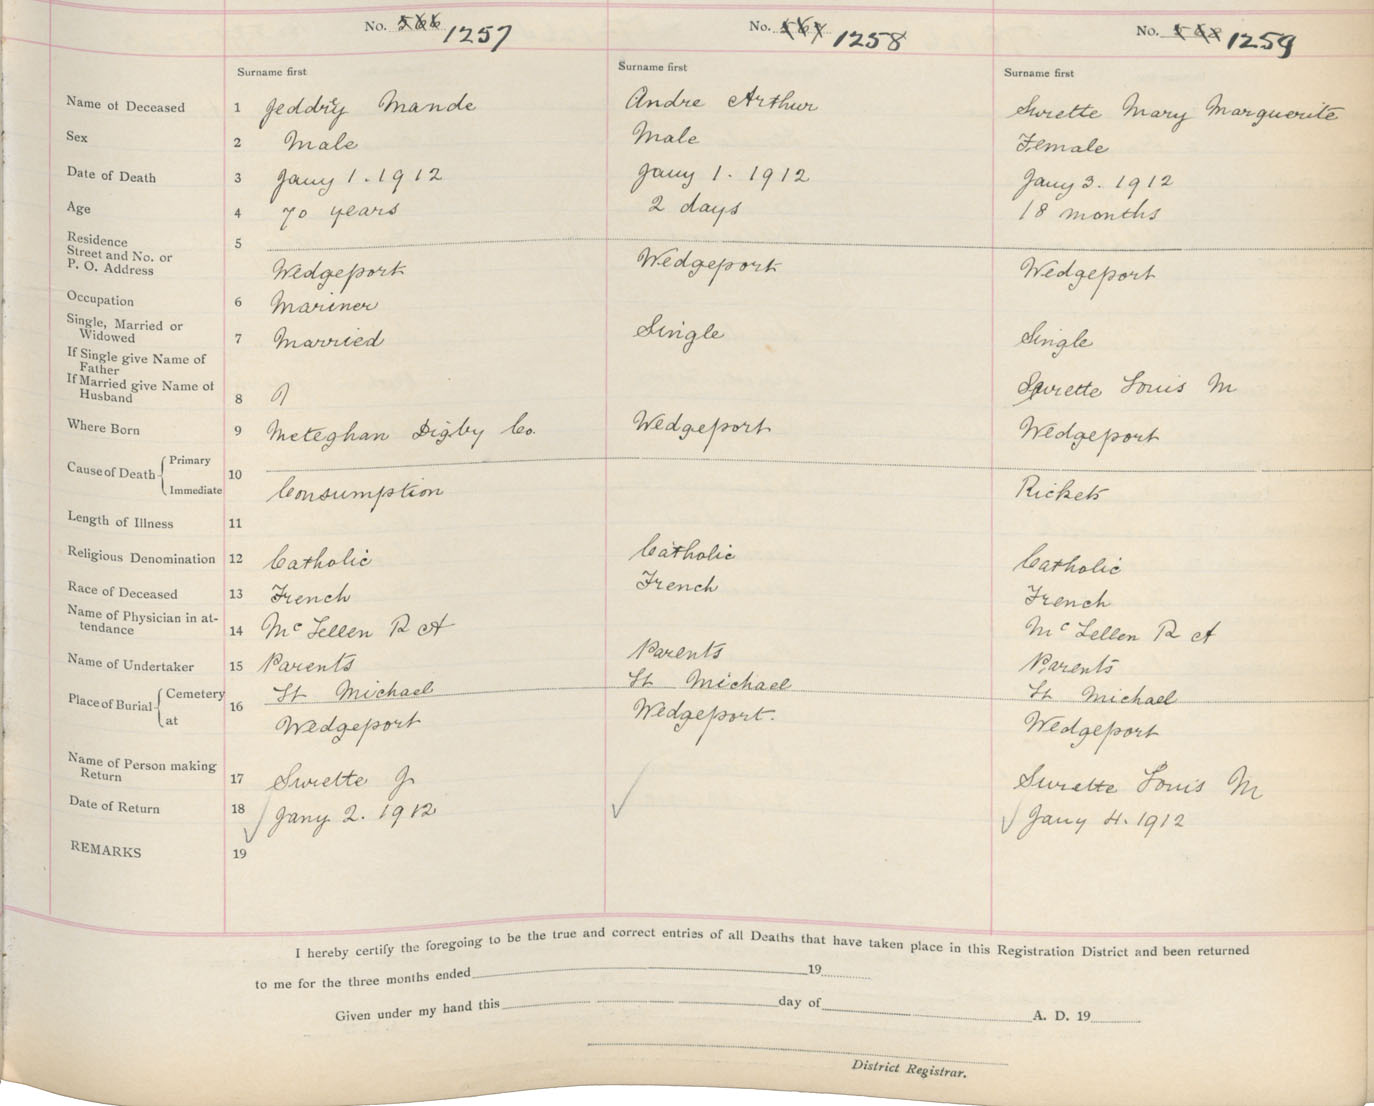 No. 566 1257 No. 567 1258 No. 568 1259
Surname first Surname first Surname first
Name of Deceased 1 Jeddry Mande Andre Arthur Surette Mary Marguerite
Sex 2 Male Male Female
Date of Death 3 Jany 1. 1912 Jany 1. 1912 Jany 3. 1912
Age 4 70 years 2 days 18 months
Residence 5
Street and No. or
P. O. Address Wedgeport Wedgeport Wedgeport
Occupation 6 Mariner
Single, Married or
Widowed 7 Married Single Single
If Single give Name of
Father
If Married give Name of
Husband 8 Surette Louis M
Where Born 9 Meteghan Digby Co. Wedgeport Wedgeport
Cause of Death Primary 10
Immediate Consumption Rickets
Length of Illness 11
Religious Denomination 12 Catholic Catholic Catholic
Race of Deceased 13 French French French
Name of Physician in at-
tendance 14 McLellen R A McLellen R A
Name of Undertaker 15 Parents Parents Parents
Place of Burial Cemetery 16 St Michael St Michael St Michael
at Wedgeport Wedgeport. Wedgeport
Name of Person making
Return 17 Surette J Surette Louis M
Date of Return 18 Jany 2. 1912 Jany 4. 1912
REMARKS 19
I hereby certify the foregoing to be the true and correct entries of all Deaths that have taken place in this Registration District and been returned
to me for the three months ended 19
Given under my hand this day of A. D. 19
District Registrar.